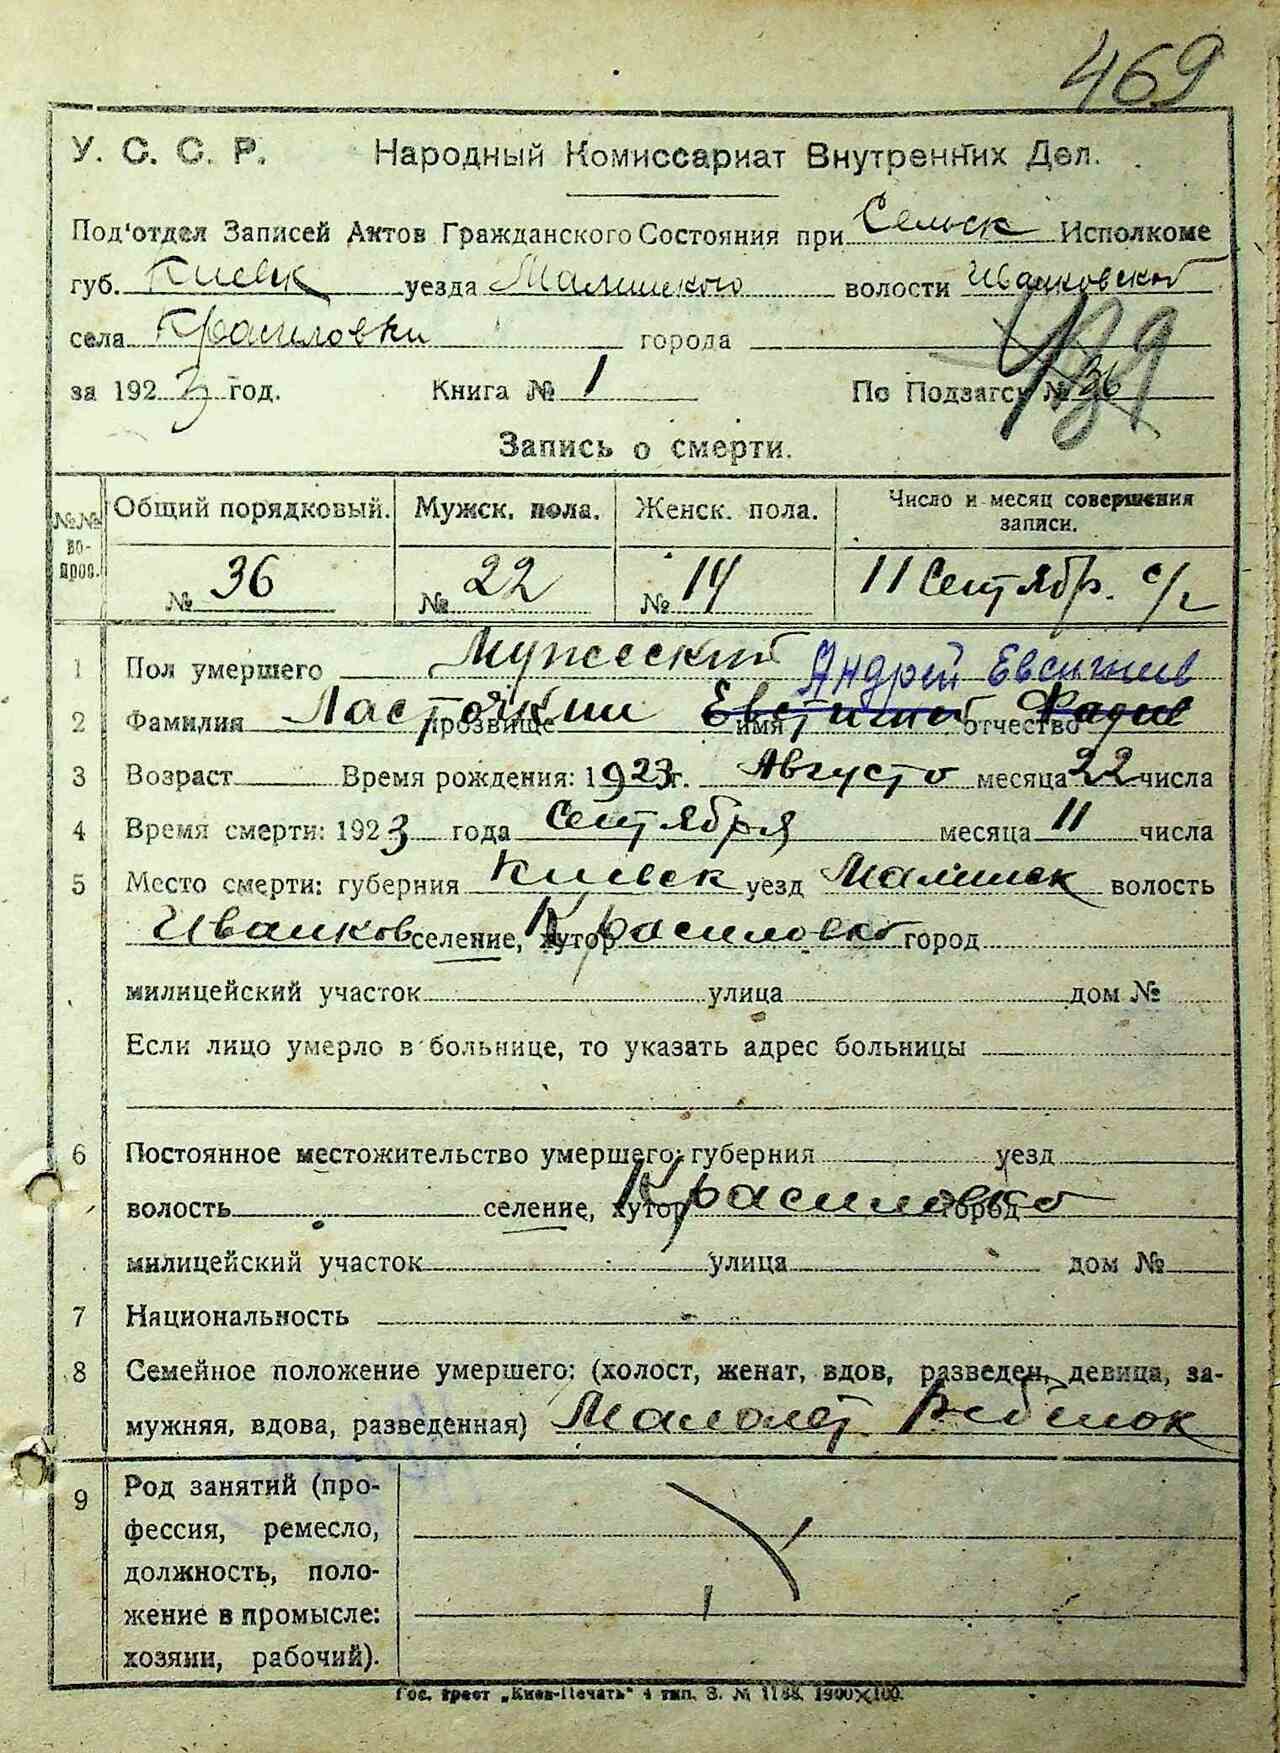 469
У. С. С. Р. Народный Комиссариат Внутренних Дел.
Под'отдел Записей Актов Гражданского Состояния при Сельск Исполкоме
губ. Киевск уезда Малинского волости Иванковской
села Красиловки города
за 1923 год. Книга № 1 По Подзагсу № 36
439
Запись о смерти.
№№ вопрос. Общий порядковый. Мужск. пола. Женск. пола. Число и месяц совершения записи.
№ 36 № 22 № 14 11 Сентябр. с/г
1 Пол умершего Мужеский Андрей Евстиниев
2 Фамилия Ласточкин прозвище Евстигний имя отчество Фадив
3 Возраст Время рождения: 1923 г. Августа месяца 22 числа
4 Время смерти: 1923 года Сентября месяца 11 числа
5 Место смерти: губерния Киевск уезд Малинск волость
Иванков селение, хутор Красиловка город
милицейский участок улица дом №
Если лицо умерло в больнице, то указать адрес больницы
6 Постоянное местожительство умершего: губерния уезд
волость селение, хутор Красиловка город
милицейский участок улица дом №
7 Национальность
8 Семейное положение умершего: (холост, женат, вдов, разведен, девица, за-
мужняя, вдова, разведенная) Малолет Ребенок
9 Род занятий (про-
фессия, ремесло,
должность, поло-
жение в промысле:
хозяин, рабочий).
Гос. трест „Киев-Печать" 4 тип. З. № 1188. 1900×100.